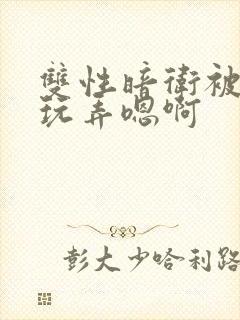 雙性暗衛被
玩弄嗯啊
彭大少哈利路